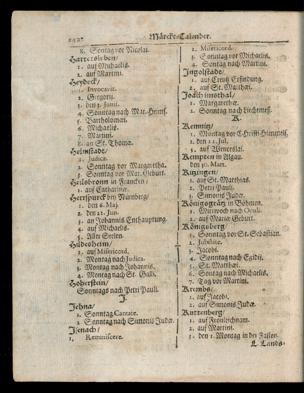 Märckte-Calender.
8. Sontag vor Nicolai.
Hattersleben/
1. auf Michaelis.
2. auf Martini.
Heydeck/
1. Invocavit.
2. Gregorii.
3. den 3. Junii.
4. Sonntag nach Mar. Himmf.
5. Bartholomæi.
6. Michaelis.
7. Martini.
8. an St. Thomæ.
Helmstädt/
1. Judica.
2. Sonntag vor Margaretha.
3. Sonntag vor Mar. Geburt.
Heilsbronn in Francken/
1. auf Catharinæ.
Herrspruck bey Nürnberg/
1. den 6. Maj.
2. den 21. Jun.
3. an Johannis Enthauptung.
4. auf Michaelis.
5. Aller Seelen.
Hildesheim/
1. auf Misericord.
2. Montag nach Judica.
3. Montag nach Johannis.
4. Montag nach St. Gall.
Hoherstein/
Sonntags nach Petri Pauli.
J.
Jehna/
1. Sonntag Cantate.
2. Sonntag nach Simonis Judæ.
Isenach/
1. Reminiscere.
2. Misericord.
3. Sonntag vor Michaelis.
4. Sontag nach Martini.
Ingolstadt/
1. auf Creutz Erfindung.
2. auf St. Matthæi.
Joachimsthal/
1. Margarethæ.
2. Sonntag nach Liechtmeß.
K.
Kemnitz/
1. Montag vor Christi Himmelf.
2. den 11. Jul.
3. auf Universiat.
Kempten in Algäu.
den 30. Mart.
Kitzingen/
1. auf St. Matthias.
2. Petri Pauli.
3. Simonis Judæ.
Königsgrätz in Böhmen.
1. Mittwoch nach Oculi.
2. auf Mariæ Geburt.
Königsberg/
1. Sonntag vor St. Sebastian.
2. Jubilate.
3. Jacobi.
4. Sonntag nach Egidij.
5. St. Matthæi.
6. Sonntag nach Michaelis.
7. Tag vor Martini.
Krembs/
1. auf Jacobi.
2. auf Simonis Judæ.
Kuttenberg/
1. auf Fronleichnam.
2. auf Martini.
3. den 1. Montag in der Fasten.
L. Lands-